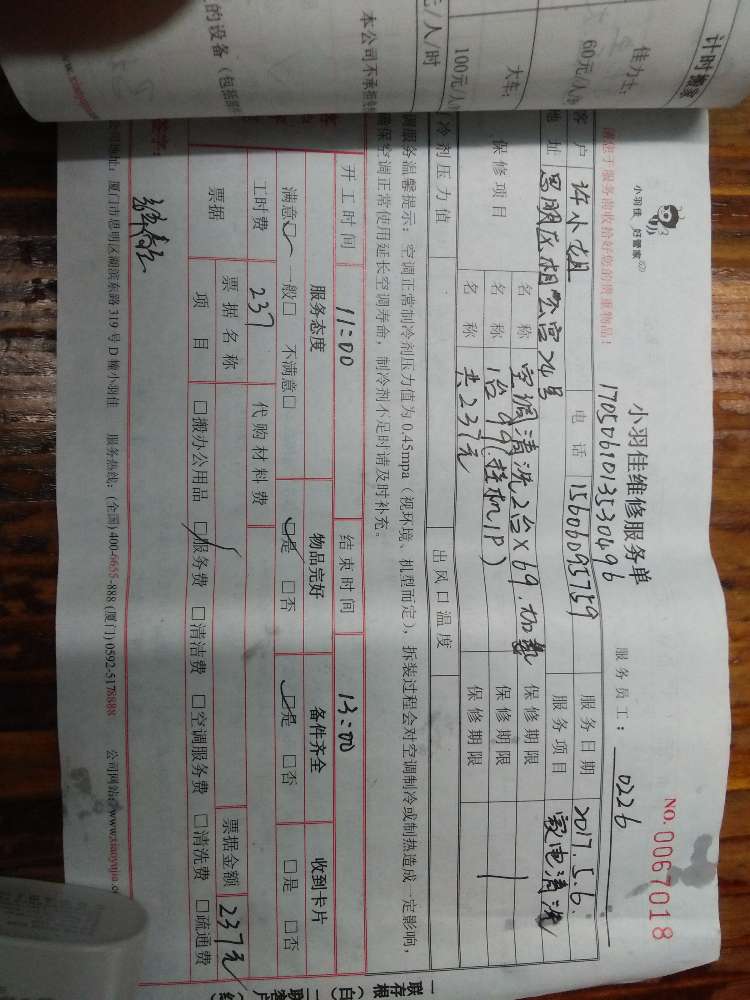 计时搬家
佳力士:
60元/人/时
大车:
100元/人/时
元/人/时
本公司不承担
的设备(包括
小羽佳 好管家
小羽佳维修服务单
NO. 0067018
17050610135530496
服务员工: 0226
请您于服务前收拾好您的贵重物品!
客户 许小姐 电话 15606095759 服务日期 2017.5.6.
地址 思明区相公宫24号 服务项目 家电清洗
保修项目 名称 空调清洗2台×69. 保修期限
名称 1台99.挂机1P) 保修期限
名称 共237元 保修期限
冷剂压力值 出风口温度
调服务温馨提示:空调正常制冷剂压力值为0.45mpa(视环境、机型而定),拆装过程会对空调制冷或制热造成一定影响,
确保空调正常使用延长空调寿命,制冷剂不足时请及时补充。
开工时间 11:00 结束时间 13:00
服务态度 物品完好 备件齐全 收到卡片
满意□ 一般□ 不满意□ □是 □否 □是 □否 □是 □否
工时费 237 代购材料费
票据 票据名称 票据金额 237元
项目 □搬办公用品 □服务费 □清洁费 □空调服务费 □清洗费 □疏通费
签字:
公司地址:厦门市思明区湖滨东路319号D幢小羽佳 服务热线:(全国)400-6655-888 (厦门)0592-5178888 公司网站:www.xiaoyujia.co
一联存根(白)
二联客户(红